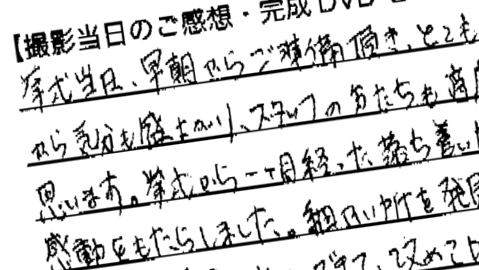 【撮影当日のご感想・完成DVD
挙式当日、早朝からご準備頂き、とても
から気分も盛上がり、スタッフの方たちも
思います。挙式から一ヶ月経った落ち着い
感動をもたらしました。細かい所を発
できて、改めて